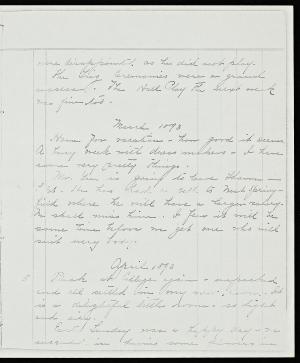 were disappointed, as he did not play.
The Class Ceremonies were a grand
success. The Hall Play the last week
was fine too.
March 1893
Home for vacation - how good it seems
A busy week with dress makers - I have
some very pretty things.
Mr. is going to leave
He has had a call to West Spring-
field where he will have a larger salary.
We shall miss him. I fear it will be
some time before we get one who will
suit every body.
April 1893
Back at College again - unpacked
and all settled in my new room. It
is a delightful little room - so light
and airy.
East Sunday was a happy day - we
succeed in having some